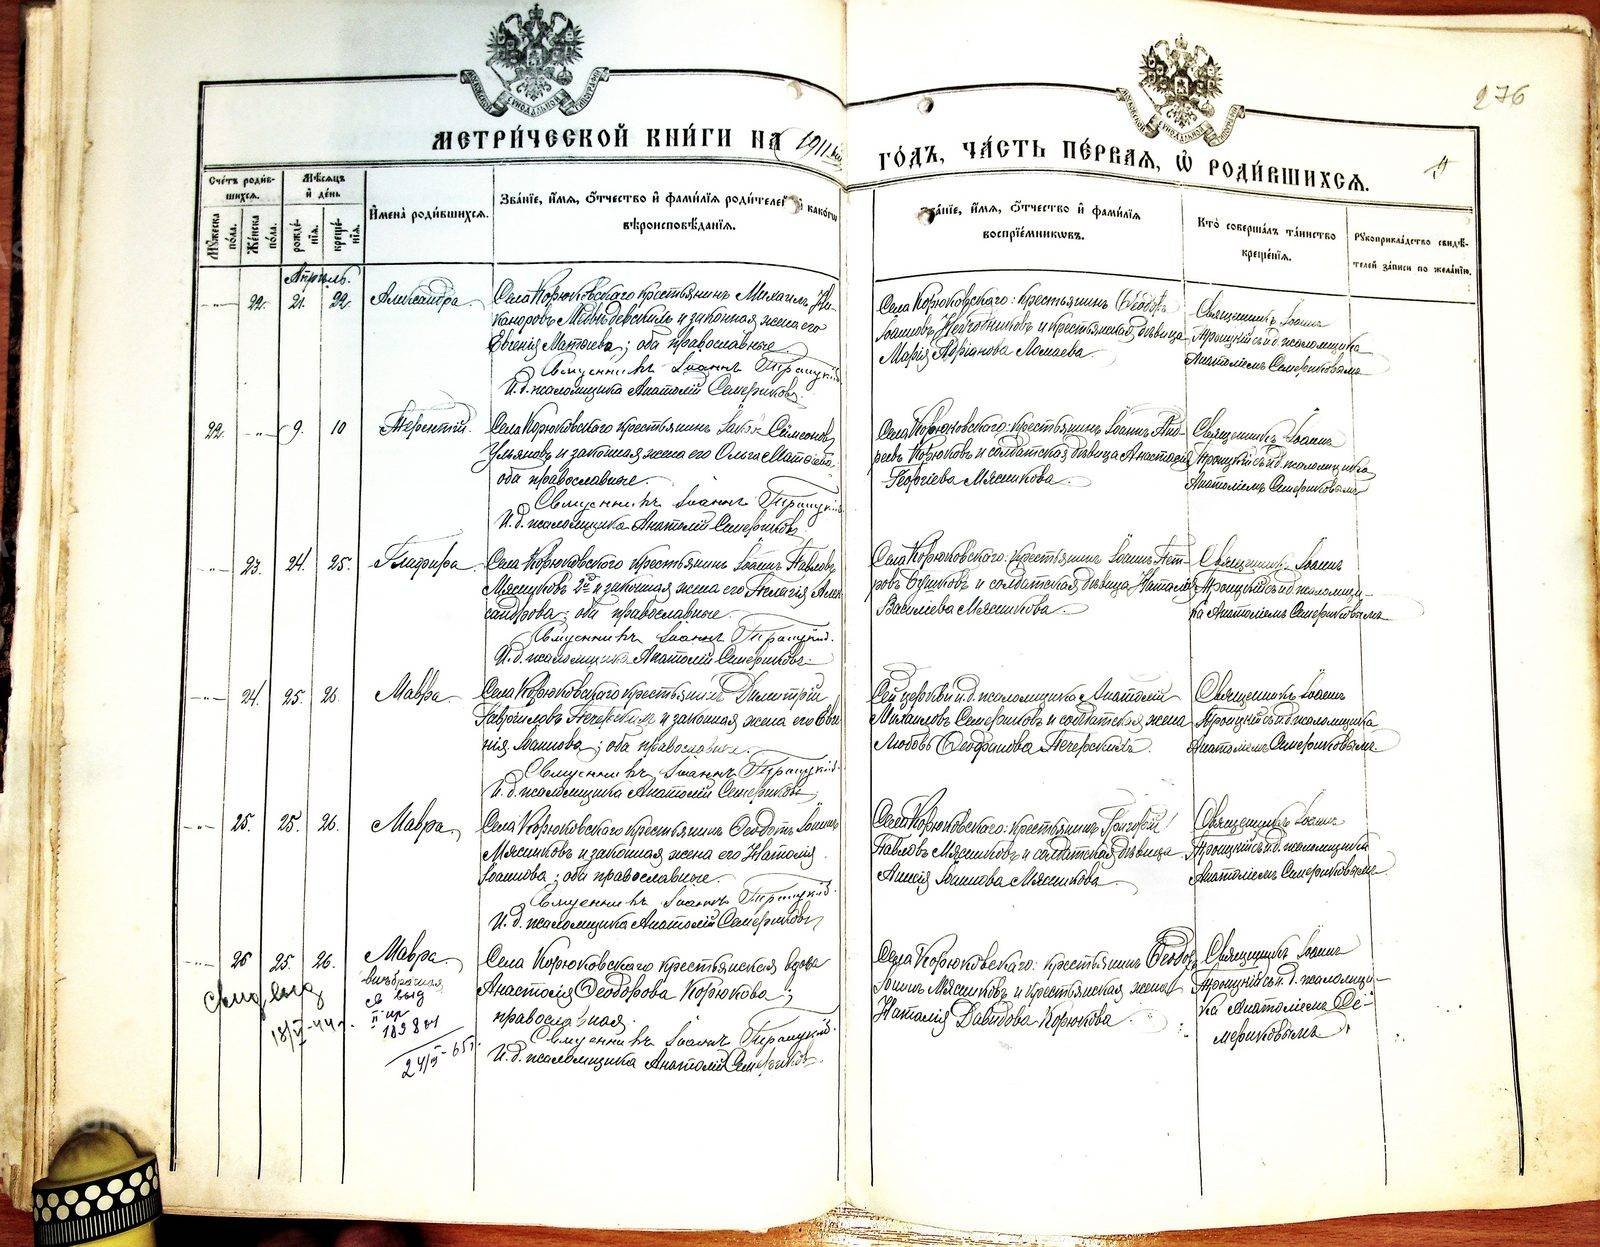 276
МЕТРИЧЕСКОЙ КНИГИ НА 1911 ГОДЪ, ЧАСТЬ ПЕРВАЯ, Ѡ РОДИВШИХСЯ.
Счетъ родившихся.
Мужеска пола.
Женска пола.
Мѣсяцъ и день
рожденія.
крещенія.
Имена родившихся.
Званіе, имя, отчество и фамилія родителей и какого
вѣроисповѣданія.
Званіе, имя, отчество и фамилія
воспріемниковъ.
Кто совершалъ таинство
крещенія.
Рукоприкладство свидѣ-
телей записи по желанію.
Апрѣль.
22. 21. 22. Александра
Села Корюковскаго крестьянинъ Михаилъ Ни-
каноровъ Медвѣдевскихъ и законная жена его
Евгенія Матѳіева; оба православные
Священникъ Іоаннъ Троицкій
И. д. псаломщика Анатолій Семериковъ.
Села Корюковскаго: крестьянинъ Ѳеодоръ
Іоанновъ и крестьянская дѣвица
Марія Адріанова Ломаева.
Священникъ Іоаннъ
Троицкій съ и.д. псаломщика
Анатоліемъ Семериковымъ
22. 9. 10 Терентій.
Села Корюковскаго крестьянинъ Симеоновъ
Ульяновъ и законная жена его Ольга Матѳіева;
оба православные.
Священникъ Іоаннъ Троицкій
И. д. псаломщика Анатолій Семериковъ
Села Корюковскаго: крестьянинъ Іоаннъ Анд-
реевъ Корюковъ и солдатская дѣвица Анастасія
Георгіева Мясникова.
Священникъ Іоаннъ
Троицкій съ и.д. псаломщика
Анатоліемъ Семериковымъ
23. 24. 25. Глафира
Села Корюковскаго крестьянинъ Іоаннъ Павловъ
Мясниковъ 2й и законная жена его Пелагія Алек-
сандрова; оба православные.
Священникъ Іоаннъ Троицкій.
И. д. псаломщика Анатолій Семериковъ.
Села Корюковскаго: крестьянинъ Іоаннъ Пет-
ровъ и солдатская дѣвица Наталія
Василіева Мясникова.
Священникъ Іоаннъ
Троицкій съ и.д. псаломщи-
ка Анатоліемъ Семериковымъ
24. 25. 26. Мавра
Села Корюковскаго крестьянинъ Димитрій
Гавріиловъ Печерскихъ и законная жена его Евге-
нія Іоаннова; оба православные.
Священникъ Іоаннъ Троицкій.
И. д. псаломщика Анатолій Семериковъ
Сей церкви и.д. псаломщика Анатолій
Михаиловъ Семериковъ и солдатская жена
Любовь Ѳеофанова Печерскихъ.
Священникъ Іоаннъ
Троицкій съ и.д. псаломщика
Анатоліемъ Семериковымъ
25. 25. 26. Мавра
Села Корюковскаго крестьянинъ Ѳеодотъ Іоанновъ
Мясниковъ и законная жена его Наталія
Іоаннова; оба православные.
Священникъ Іоаннъ Троицкій.
И. д. псаломщика Анатолій Семериковъ
Села Корюковскаго: крестьянинъ Григорій
Павловъ Мясниковъ и солдатская дѣвица
Анисія Іоаннова Мясникова.
Священникъ Іоаннъ
Троицкій съ и.д. псаломщика
Анатоліемъ Семериковымъ
26 25. 26. Мавра
внебрачная
Села Корюковскаго крестьянская вдова
Анастасія Ѳеодорова Корюкова;
православная.
Священникъ Іоаннъ Троицкій.
И. д. псаломщика Анатолій Семериковъ.
Села Корюковскаго: крестьянинъ Ѳеодоръ
Мясниковъ и крестьянская жена
Наталія Давидова Корюкова
Священникъ Іоаннъ
Троицкій съ и. д. псаломщи-
ка Анатоліемъ Се-
мериковымъ
18/V-44 г.
24/V-65 г.